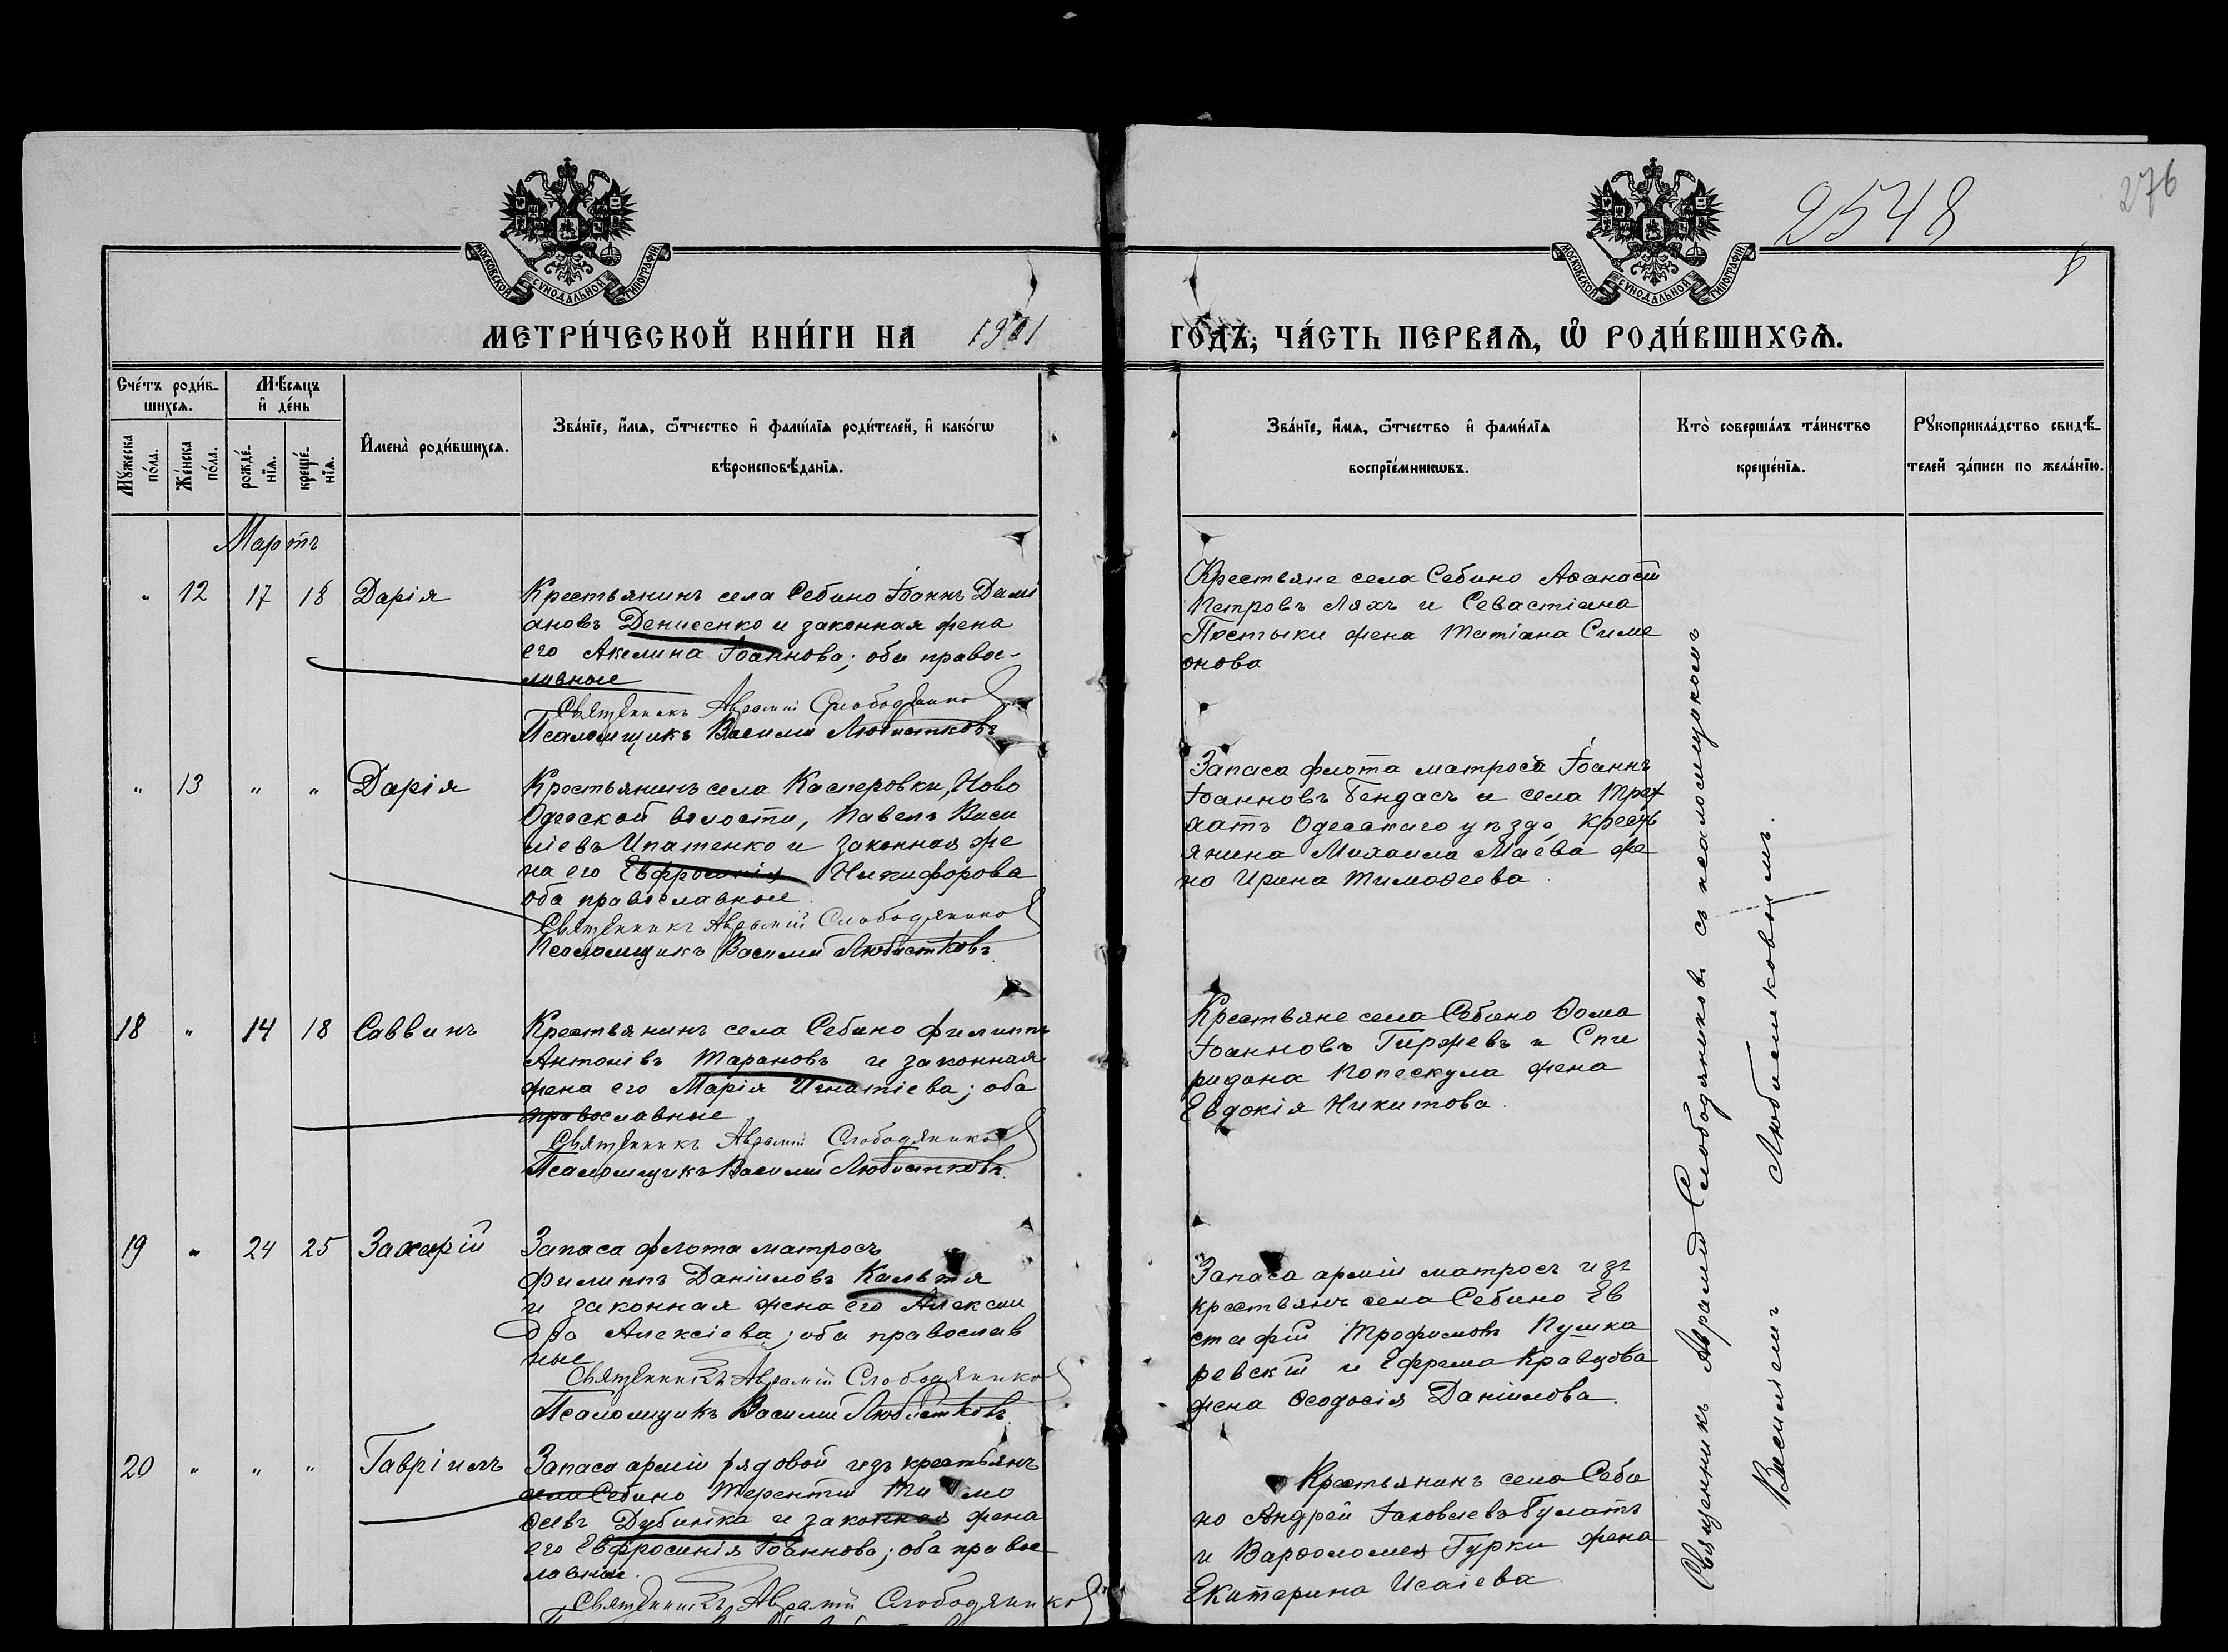 276
2548
МОСКОВСКОЙ СѴНОДАЛЬНОЙ ТИПОГРАФІИ
МОСКОВСКОЙ СѴНОДАЛЬНОЙ ТИПОГРАФІИ
МЕТРИ́ЧЕСКОЙ КНИ́ГИ НА 1901
ГО́ДЪ, ЧА́СТЬ ПЕРВАѦ, Ѽ РОДИ́ВШИХСѦ.
Сче́тъ роди́вшихсѧ.
Мꙋжеска по́ла.
Же́нска по́ла.
Мѣ́сѧцъ и҆ де́нь
рожде́нїѧ.
креще́нїѧ.
И҆мена̀ роди́вшихсѧ.
Зва́нїе, и҆́мѧ, ѻ҆́тчество и҆ фами́лїѧ роди́телей, и҆ како́гѡ
вѣроисповѣ́данїѧ.
Зва́нїе, и҆́мѧ, ѻ҆́тчество и҆ фами́лїѧ
воспрїе́мникѡвъ.
Кто̀ соверша́лъ та́инство
креще́нїѧ.
Рꙋкоприкла́дство свидѣ́-
телей за́писи по жела́нїю.
Мартъ
" 12 17 18 Дарія
Крестьянинъ села Себино Іоаннъ Дамі
ановъ Денисенко и законная жена
его Акилина Іоаннова; оба правос-
лавные
Священникъ Аврамій Слободяниковъ
Псаломщикъ Василій Любистковъ
Крестьяне села Себино Аѳанасій
Петровъ Ляхъ и Севастіана
Постыки жена Татіана Симе
онова
" 13 " " Дарія
Крестьянинъ села Касперовки, Ново
Одесской волости, Павелъ Васи
ліевъ Ипатенко и законная же
на его Евфросинія Никифорова
оба православные
Священникъ Аврамій Слободяниковъ
Псаломщикъ Василій Любистковъ
Запаса флота матросъ Іоаннъ
Іоанновъ Бендасъ и села Трех
хатъ Одесскаго уѣзда, кресть
янина Михаила Маева же
на Ирина Тимоѳеева
18 " 14 18 Саввинъ
Крестьянинъ села Себино Филиппъ
Антоніевъ Тарановъ и законная
жена его Марія Игнатіева; оба
православные
Священникъ Аврамій Слободяниковъ
Псаломщикъ Василій Любистковъ
Крестьяне села Себино Ѳома
Іоанновъ Гиржевъ и Спи
ридона Попескула жена
Евдокія Никитова
19 " 24 25 Захарій
Запаса флота матросъ
Филиппъ Даніиловъ Кальтя
и законная жена его Алексан
дра Алексіева; оба православ
ные
Священникъ Аврамій Слободяниковъ
Псаломщикъ Василій Любистковъ
Запаса арміи матросъ изъ
крестьянъ села Себино Ев
стафій Трофимовъ Пушка
ревскій и Ефрема Кравцова
жена Ѳеодосія Даніилова
20 " " " Гавріилъ
Запаса арміи рядовой изъ крестьянъ
села Себино Терентій Тимо
ѳеевъ Дубинка и законная жена
его Евфросинія Іоаннова; оба правос
лавные
Священникъ Аврамій Слободяниковъ
Крестьянинъ села Себи
но Андрей Іаковлевъ Булатъ
и Варѳоломея Гурки жена
Екатерина Исаіева
Священникъ Аврамій Слободяниковъ съ псаломщикомъ
Василіемъ Любистковымъ.